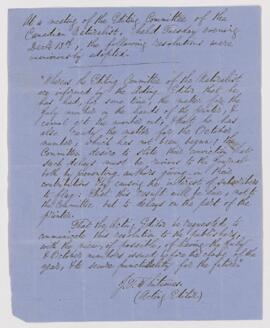 At a meeting of the Editing Committee of the
Canadian Naturalist, held Tuesday evening
Decr 15th, the following resolutions were
unanimously adopted.
"Whereas the Editing Committee of the Naturalist
are informed by the Acting Editor that he
has had, for some time, the matter for the
July number in the hands of the printer, &
cannot get the number out; that he has
also ready the matter for the October
number, which has not been begun; the
Committee desire to state their conviction that
such delays must be ruinous to the journal
both by preventing authors giving in their
contributions & by causing the interest of subscribers
to flag; that this result will be due not to
the Committee but to delays on the part of the
printer.
That the Acting Editor be requested to
communicate this resolution to the publishers,
with the view, if possible, of having the July
& October numbers issued before the close of the
year, & to secure punctuality for the future."
(Acting Editor)